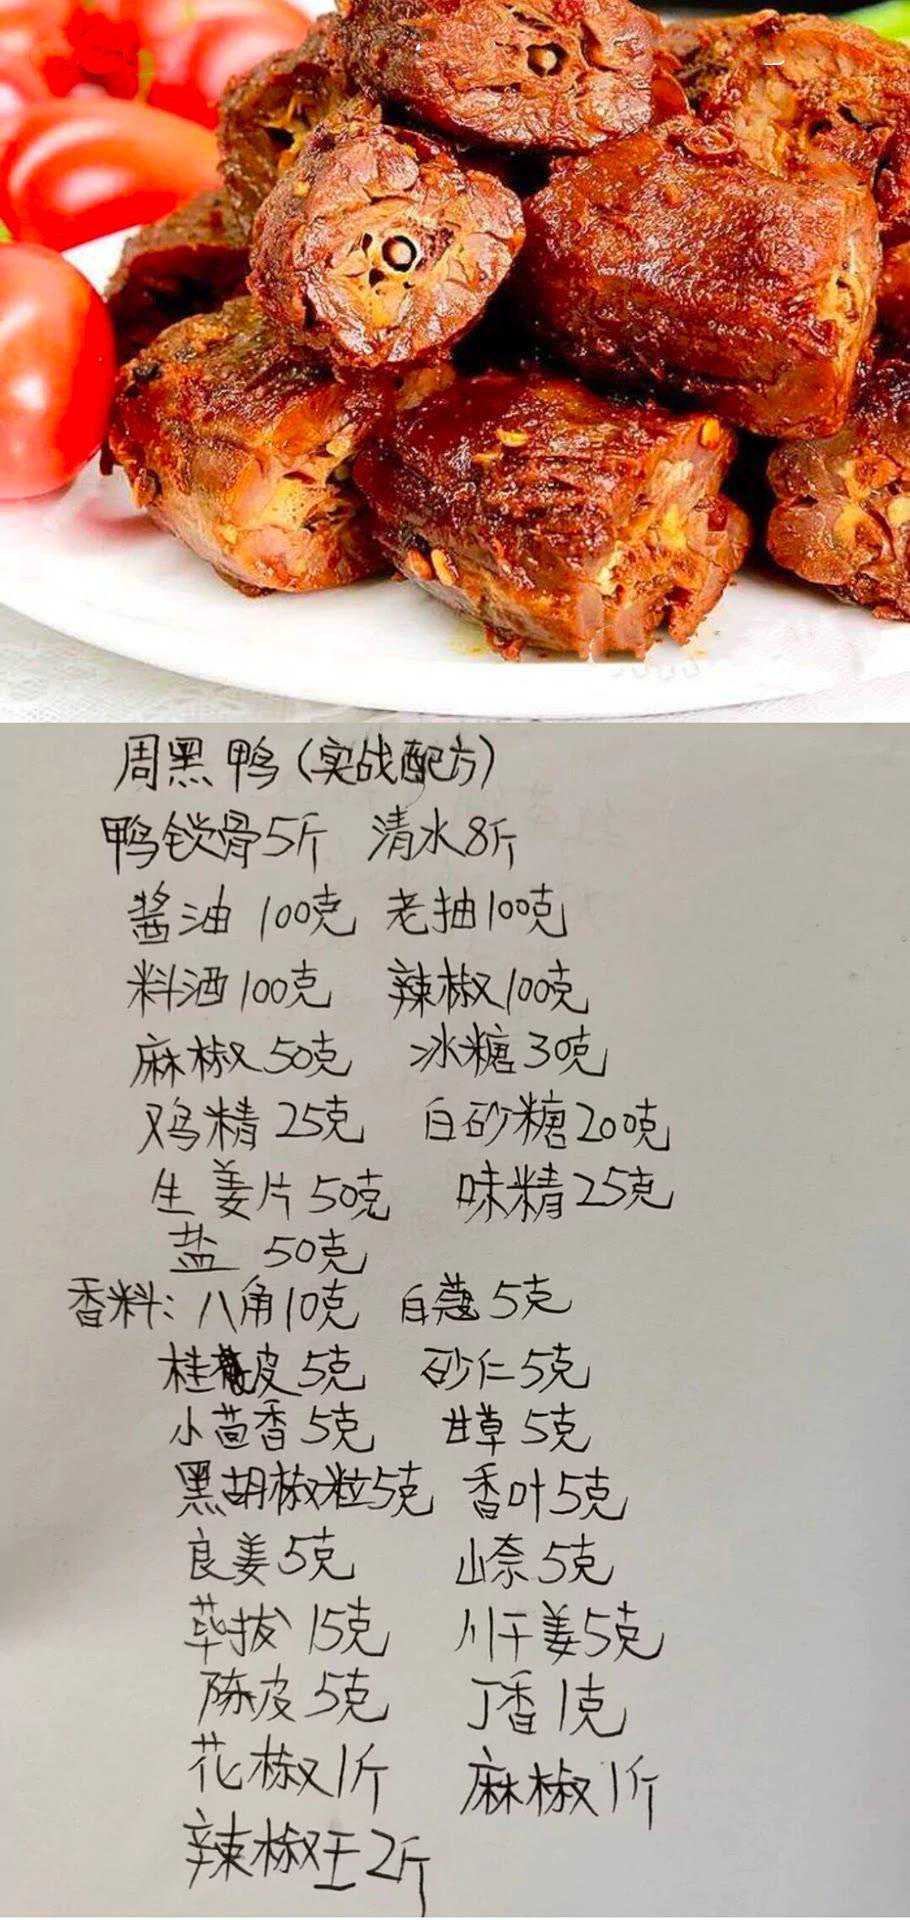 周黑鸭(实战配方)
鸭锁骨5斤 清水8斤
酱油 100克 老抽100克
料酒100克 辣椒100克
麻椒50克 冰糖30克
鸡精25克 白砂糖200克
生姜片50克 味精25克
盐 50克
香料:八角10克 白蔻5克
桂皮5克 砂仁5克
小茴香5克 甘草5克
黑胡椒粒5克 香叶5克
良姜5克 山奈5克
荜拔15克 川干姜5克
陈皮5克 丁香1克
花椒1斤 麻椒1斤
辣椒王2斤